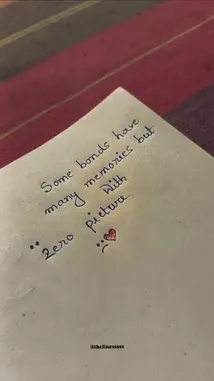 Some bonds have
many memories but
With
"Zero picture